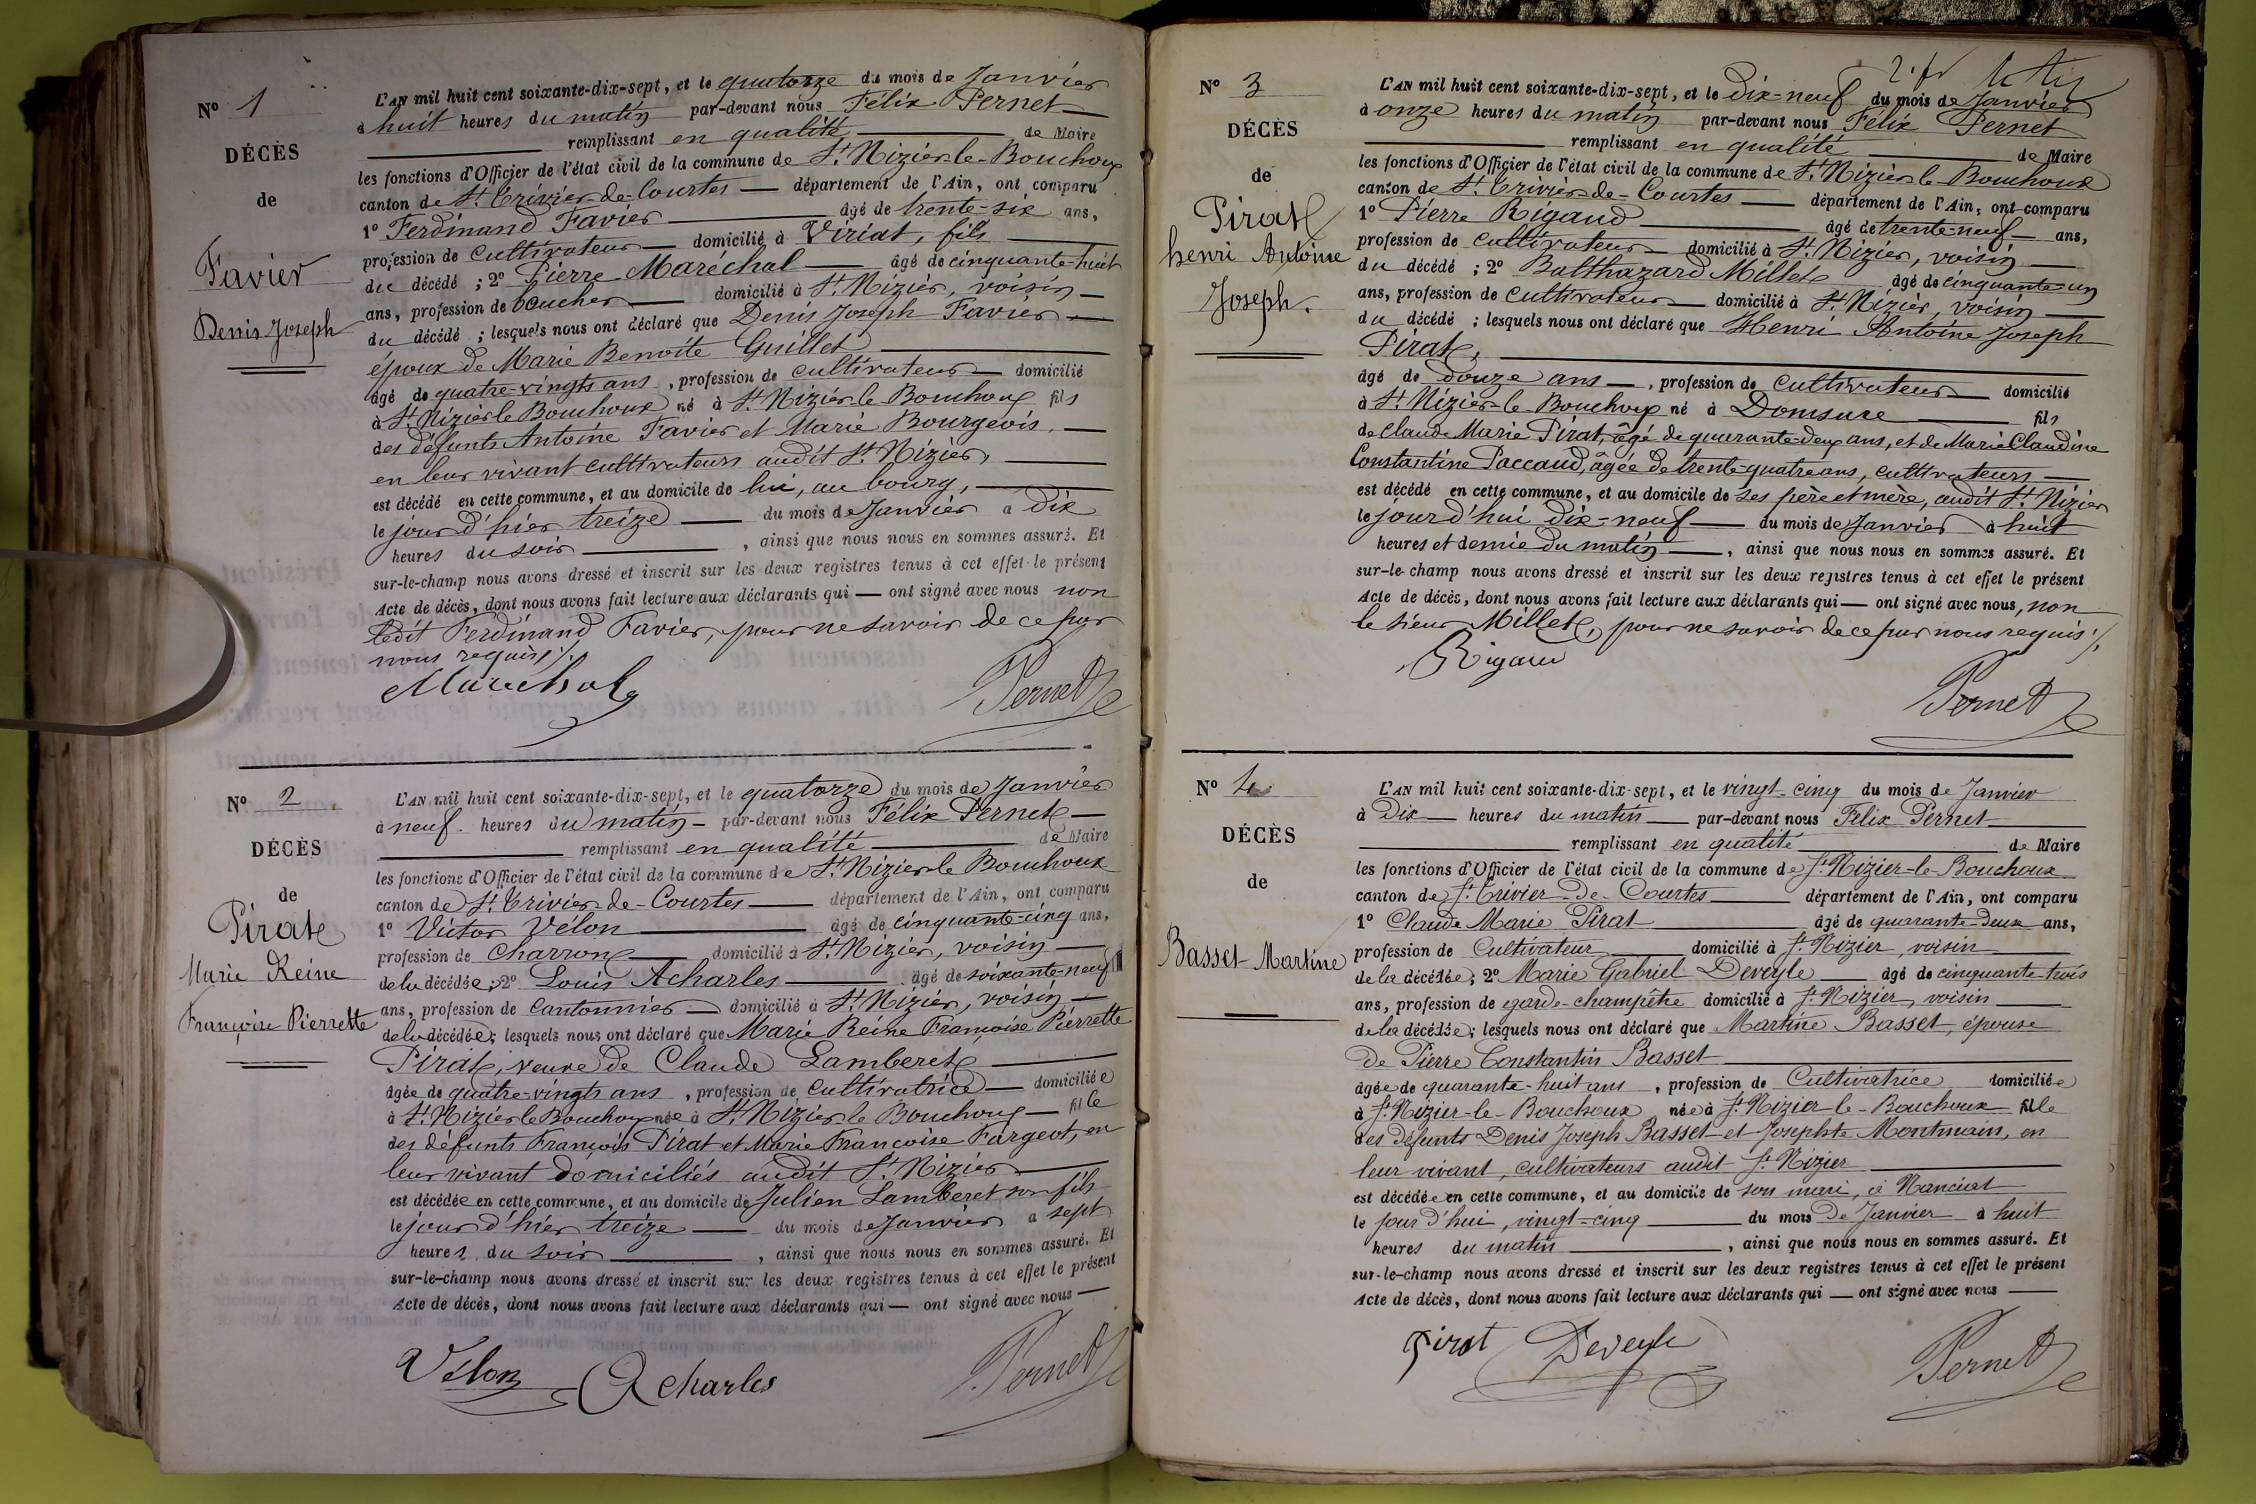 N° 1
DÉCÈS
de
Favier
Denis Joseph
L'AN mil huit cent soixante-dix-sept, et le quatorze du mois de Janvier
à huit heures du matin par-devant nous Félix Pernet
remplissant en qualité de Maire
les fonctions d'Officier de l'état civil de la commune de St Nizier-le-Bouchoux
canton de St Trivier-de-Courtes département de l'Ain, ont comparu
1° Ferdinand Favier âgé de trente-six ans,
profession de cultivateur domicilié à Viriat, fils
du décédé ; 2° Pierre Maréchal âgé de cinquante-huit
ans, profession de boucher domicilié à St Nizier, voisin
du décédé ; lesquels nous ont déclaré que Denis Joseph Favier
époux de Marie Benoite Guillet
âgé de quatre-vingts ans, profession de cultivateur domicilié
à St Nizier le Bouchoux né à St Nizier-le Bouchoux fils
des défunts Antoine Favier et Marie Bourgeois,
en leur vivant cultivateurs audit St Nizier,
est décédé en cette commune, et au domicile de lui, au bourg,
le jour d'hier treize du mois de Janvier à dix
heures du soir, ainsi que nous nous en sommes assuré. Et
sur-le-champ nous avons dressé et inscrit sur les deux registres tenus à cet effet le présent
Acte de décès, dont nous avons fait lecture aux déclarants qui — ont signé avec nous non
ledit Ferdinand Favier, pour ne savoir de ce par
nous requis ;/.
Maréchal Pernet
N° 2
DÉCÈS
de
Pirat
Marie Reine
Françoise Pierrette
L'AN mil huit cent soixante-dix-sept, et le quatorze du mois de Janvier
à neuf heures du matin — par-devant nous Félix Pernet
remplissant en qualité de Maire
les fonctions d'Officier de l'état civil de la commune de St Nizier-le Bouchoux
canton de St Trivier-de-Courtes département de l'Ain, ont comparu
1° Victor Vélon âgé de cinquante-cinq ans,
profession de charron domicilié à St Nizier, voisin
de la décédée ; 2° Louis Acharles âgé de soixante-neuf
ans, profession de cantonnier domicilié à St Nizier, voisin
de la décédée ; lesquels nous ont déclaré que Marie Reine Françoise Pierrette
Pirat, veuve de Claude Lamberet
âgée de quatre-vingts ans, profession de cultivatrice domiciliée
à St Nizier le Bouchoux née à St Nizier le Bouchoux fille
des défunts François Pirat et Marie Françoise Fargeot, en
leur vivant domiciliés audit St Nizier
est décédée en cette commune, et au domicile de Julien Lamberet son fils
le jour d'hier treize du mois de Janvier à sept
heures du soir, ainsi que nous nous en sommes assuré. Et
sur-le-champ nous avons dressé et inscrit sur les deux registres tenus à cet effet le présent
Acte de décès, dont nous avons fait lecture aux déclarants qui — ont signé avec nous —
Vélon Acharles Pernet
N° 3
DÉCÈS
de
Pirat
henri Antoine
Joseph.
L'AN mil huit cent soixante-dix-sept, et le Dix-neuf du mois de Janvier
à onze heures du matin par-devant nous Félix Pernet
remplissant en qualité de Maire
les fonctions d'Officier de l'état civil de la commune de St Nizier-le-Bouchoux
canton de St Trivier-de-Courtes département de l'Ain, ont comparu
1° Pierre Rigaud âgé de trente-neuf ans,
profession de cultivateur domicilié à St Nizier, voisin
du décédé ; 2° Balthazard Millet âgé de cinquante-un
ans, profession de cultivateur domicilié à St Nizier, voisin
du décédé ; lesquels nous ont déclaré que Henri Antoine Joseph
Pirat,
âgé de douze ans, profession de cultivateur domicilié
à St Nizier-le-Bouchoux né à Domsure fils
de Claude Marie Pirat, âgé de quarante-deux ans, et de Marie Claudine
Constantine Paccaud, âgée de trente-quatre ans, cultivateurs
est décédé en cette commune, et au domicile de ses père et mère, audit St Nizier
le jour d'hui dix-neuf du mois de Janvier à huit
heures et demie du matin, ainsi que nous nous en sommes assuré. Et
sur-le-champ nous avons dressé et inscrit sur les deux registres tenus à cet effet le présent
Acte de décès, dont nous avons fait lecture aux déclarants qui — ont signé avec nous, non
le sieur Millet, pour ne savoir de ce par nous requis ;/.
Rigaud
Pernet
N° 4
DÉCÈS
de
Basset Martine
L'AN mil huit cent soixante-dix-sept, et le vingt-cinq du mois de Janvier
à Dix heures du matin par-devant nous Félix Pernet
remplissant en qualité de Maire
les fonctions d'Officier de l'état civil de la commune de St Nizier-le-Bouchoux
canton de St Trivier-de-Courtes département de l'Ain, ont comparu
1° Claude Marie Pirat âgé de quarante-deux ans,
profession de Cultivateur domicilié à St Nizier, voisin
de la décédée ; 2° Marie Gabriel Deveyle âgé de cinquante-trois
ans, profession de garde-champêtre domicilié à St Nizier, voisin
de la décédée ; lesquels nous ont déclaré que Martine Basset, épouse
de Pierre Constantin Basset
âgée de quarante-huit ans, profession de Cultivatrice domiciliée
à St Nizier-le-Bouchoux née à St Nizier-le-Bouchoux fille
des défunts Denis Joseph Basset et Josephte Montmain, en
leur vivant, cultivateurs audit St Nizier
est décédée en cette commune, et au domicile de son mari, à Nanciat
le jour d'hui, vingt-cinq du mois de Janvier à huit
heures du matin, ainsi que nous nous en sommes assuré. Et
sur-le-champ nous avons dressé et inscrit sur les deux registres tenus à cet effet le présent
Acte de décès, dont nous avons fait lecture aux déclarants qui — ont signé avec nous
Pirat Deveyle Pernet